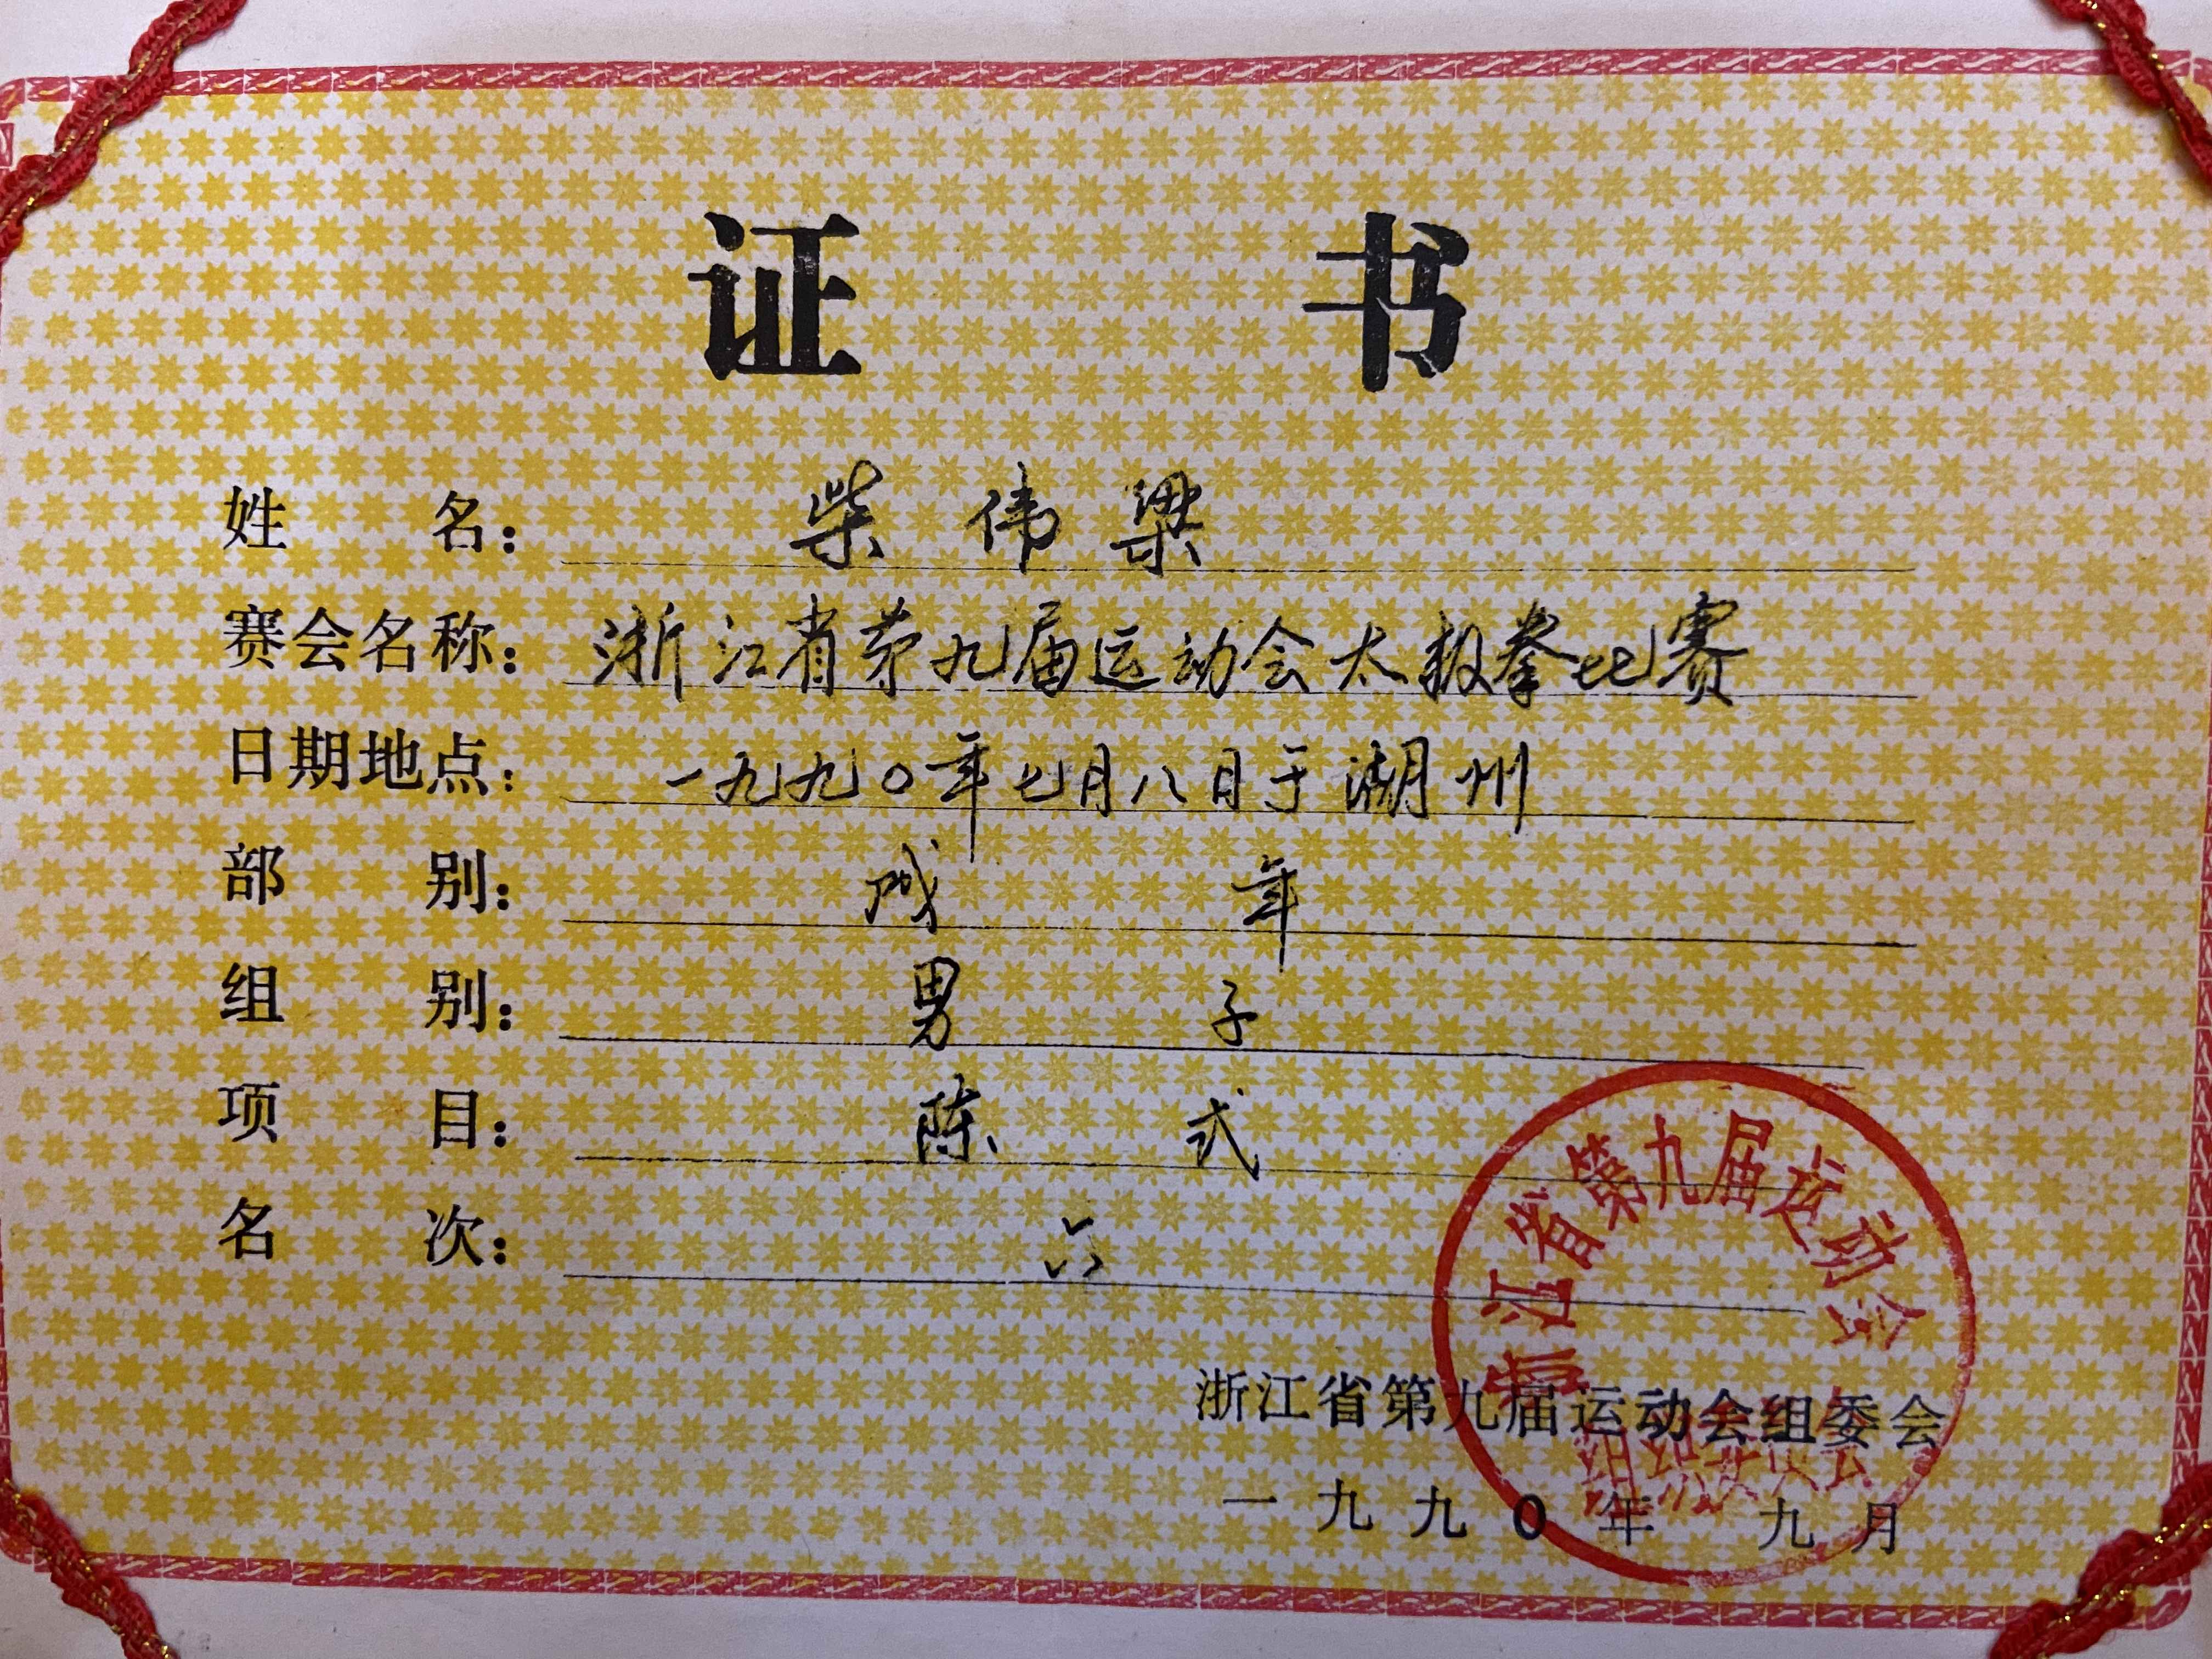 证 书
姓 名： 柴伟梁
赛会名称： 浙江省第九届运动会太极拳比赛
日期地点： 一九九〇年七月八日于湖州
部 别： 成 年
组 别： 男 子
项 目： 陈 式
名 次： 六
浙江省第九届运动会
组织委员会
浙江省第九届运动会组委会
一九九0年 九月